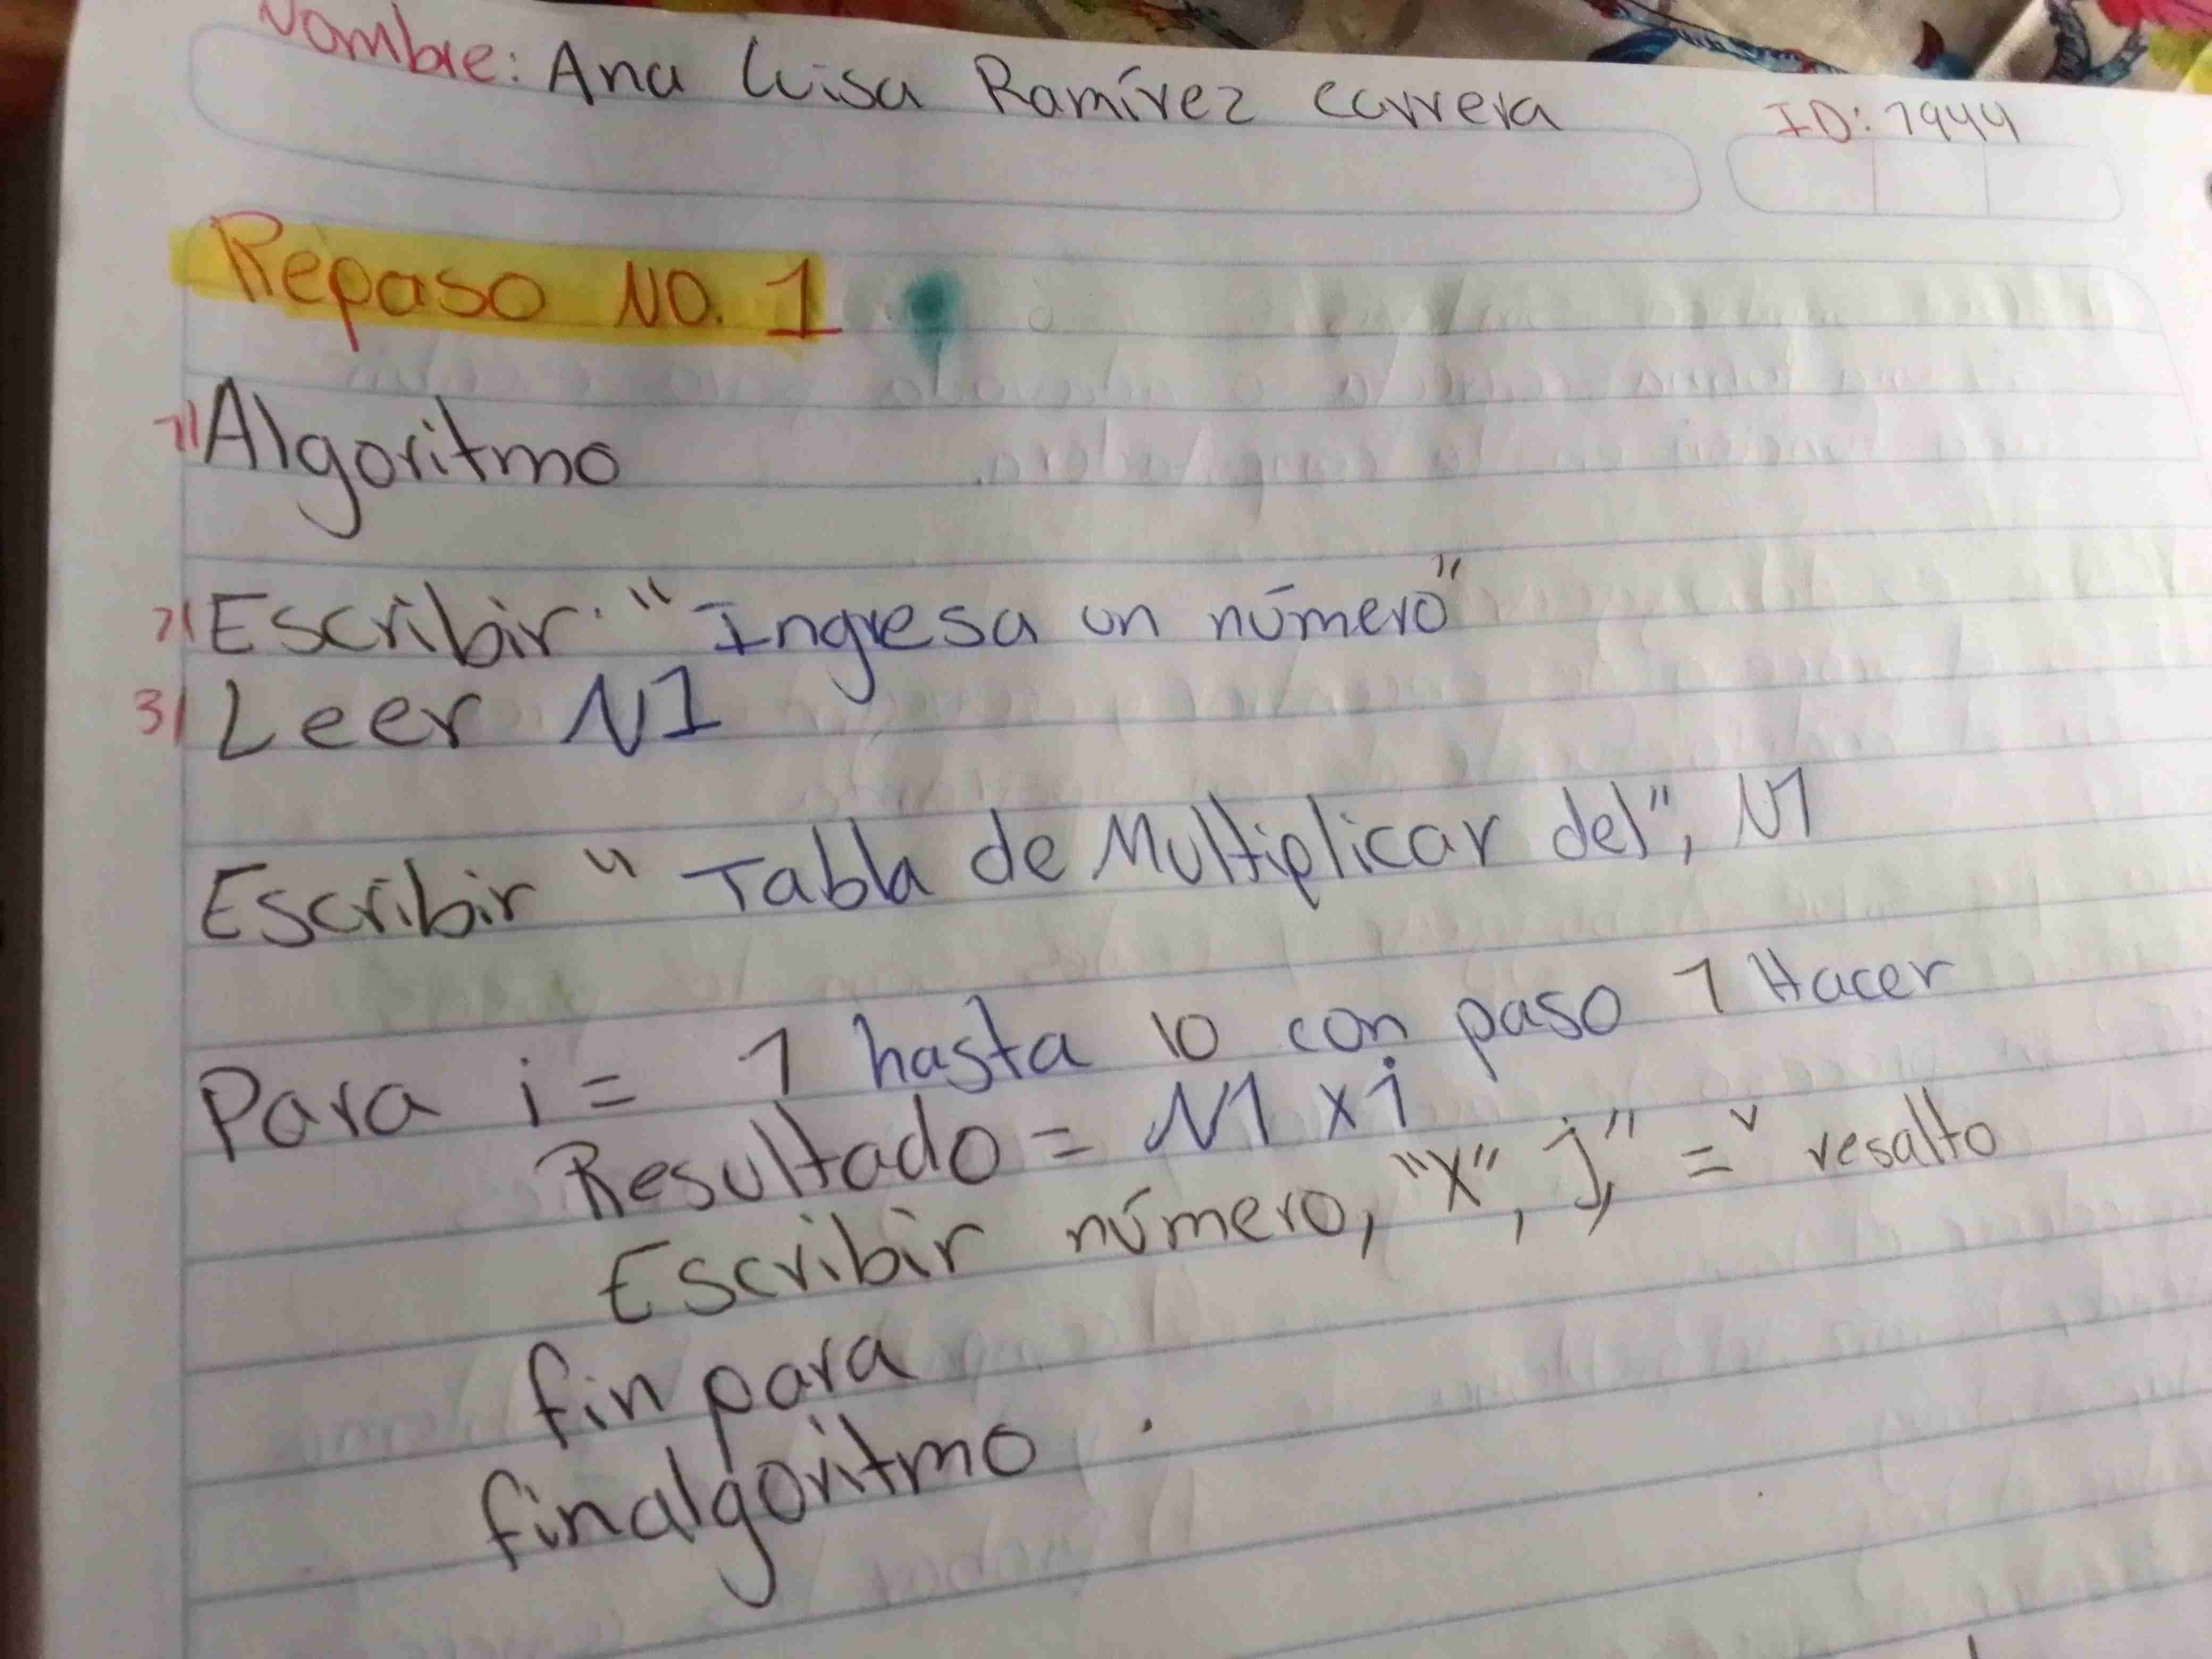 Nombre: Ana Luisa Ramírez Carrera ID: 1944
Repaso NO. 1
1| Algoritmo
2| Escribir "Ingresa un número"
3| Leer N1
Escribir "Tabla de Multiplicar del", N1
Para i = 1 hasta 10 con paso 1 Hacer
Resultado = N1 x i
Escribir número, "X", j," =" resalto
fin para
finalgoritmo